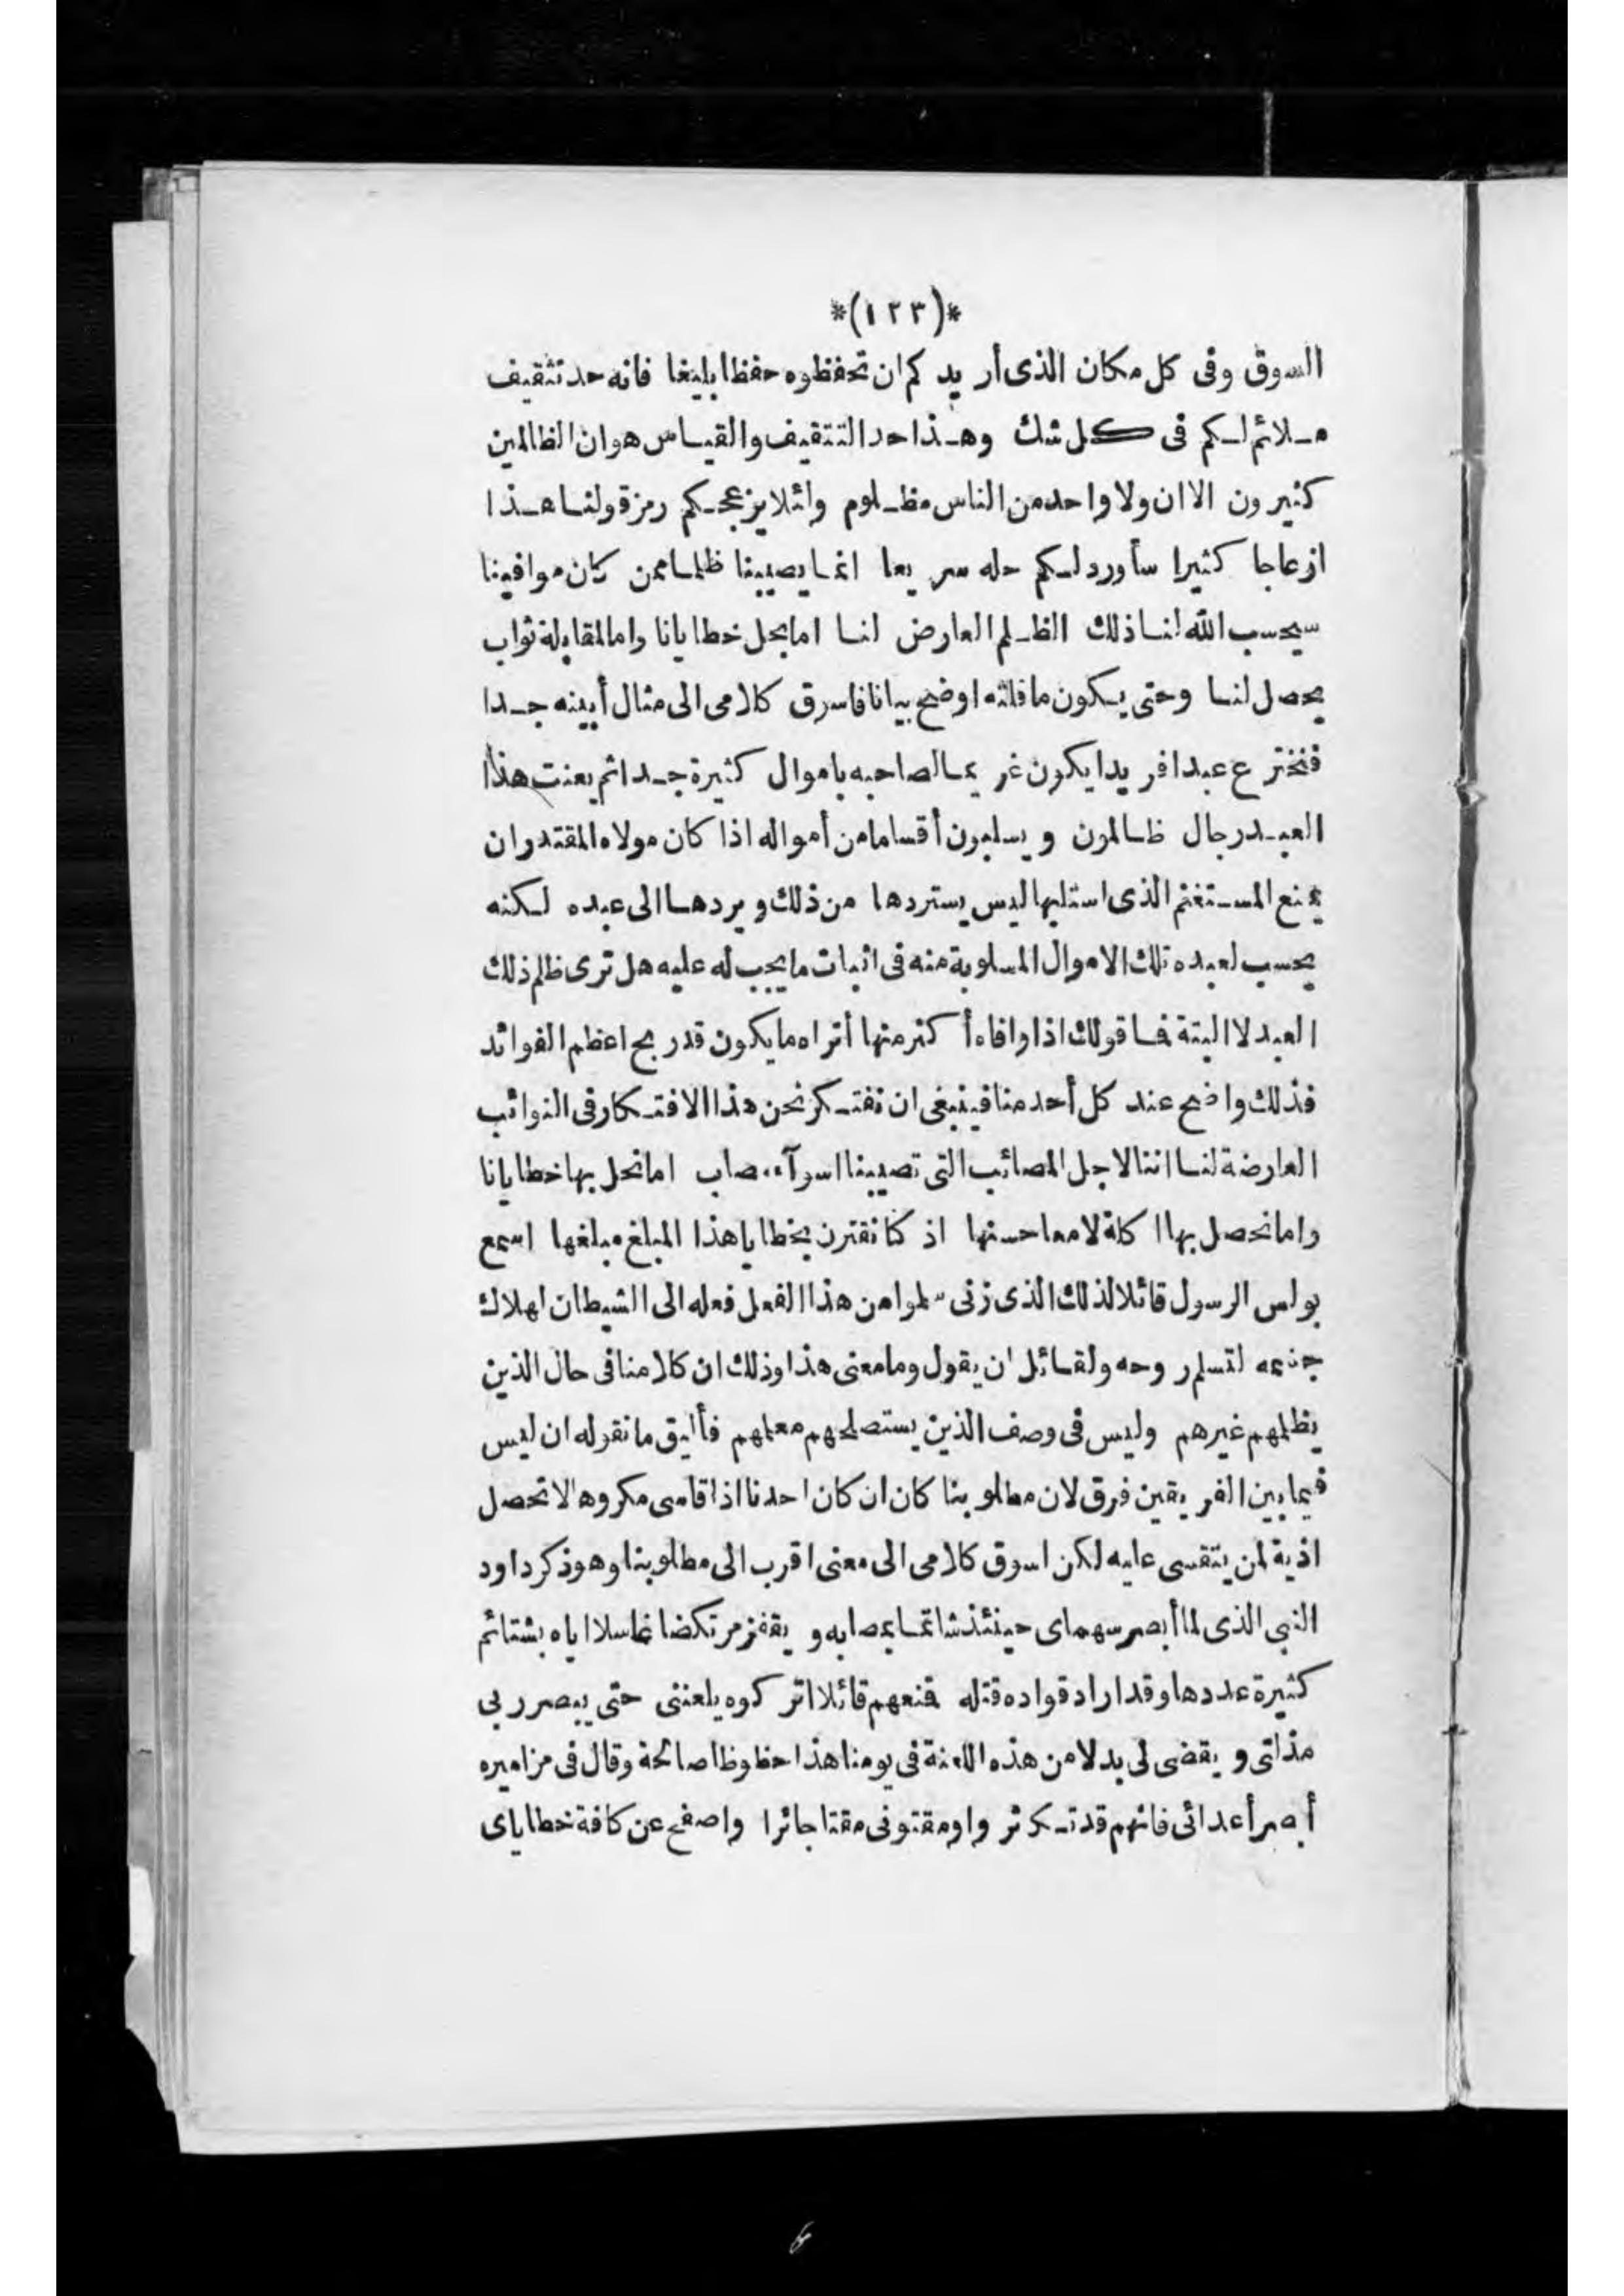 *(١٢٣)*
السوق وفى كل مكان الذى أريدكم ان تحفظوه حفظا بليغا فانه حد تثقيف
ملائم لكم فى كل شك وهذا حد التتقيف والقياس هو ان الظالمين
كثيرون الا ان ولا واحد من الناس مظلوم ولئلا يزعجكم رمزة قولنا هذا
ازعاجا كثيرا سأورد لكم حله سريعا انما يصيبنا ظلما ممن كان موافينا
سيحسب الله لنا ذلك الظلم العارض لنا اما بحل خطايانا واما لمقابلة ثواب
يحصل لنا وحتى يكون ما قلته اوضح بيانا فاسوق كلامى الى مثال أبينه جدا
فنخترع عبدا فريدا يكون غريما لصاحبه باموال كثيرة جدا ثم يعنت هذا
العبد رجال ظالمون ويسلبون أقساما من أمواله اذا كان مولاه المقتدر ان
يمنع المستغنم الذى استلبها ليس يستردها من ذلك ويردها الى عبده لكنه
يحسب لعبده تلك الاموال المسلوبة منه فى اثبات ما يجب له عليه هل ترى ظلم ذلك
العبد لا البتة فما قولك اذا وافاه أكثر منها أتراه ما يكون قد ربح اعظم الفوائد
فذلك واضح عند كل أحد منا فينبغى ان نفتكر نحن هذا الافتكار فى النوائب
العارضة لنا اننا لاجل المصائب التى تصيبنا اسوآء مصاب اما نحل بها خطايانا
واما نحصل بها اكلة لامعا حسنها اذ كنا نقترن بخطايا هذا المبلغ مبلغها اسمع
بولس الرسول قائلا لذلك الذى زنى سلموا من هذا الفعل فعله الى الشيطان لهلاك
جسمه لتسلم روحه ولقائل ان يقول وما معنى هذا وذلك ان كلامنا فى حال الذين
يظلمهم غيرهم وليس فى وصف الذين يستصلحهم معلمهم فأليق ما نقوله ان ليس
فيما بين الفريقين فرق لان مطلوبنا كان ان كان احدنا اذا قاسى مكروها لا تحصل
اذية لمن يتقسى عليه لكن اسوق كلامى الى معنى اقرب الى مطلوبنا وهو ذكر داود
النبى الذى لما أبصر سهماى حينئذ شاتما بمصابه ويقفز مرتكضا غاسلا اياه بشتائم
كثيرة عددها وقد اراد قواده قتله فمنعهم قائلا اتركوه يلعننى حتى يبصر ربى
مذلتى ويقضى لى بدلا من هذه اللعنة فى يومنا هذا حظوظا صالحة وقال فى مزاميره
أبصر أعدائى فانهم قد تكثروا ومقتونى مقتا جائرا واصفح عن كافة خطاياى